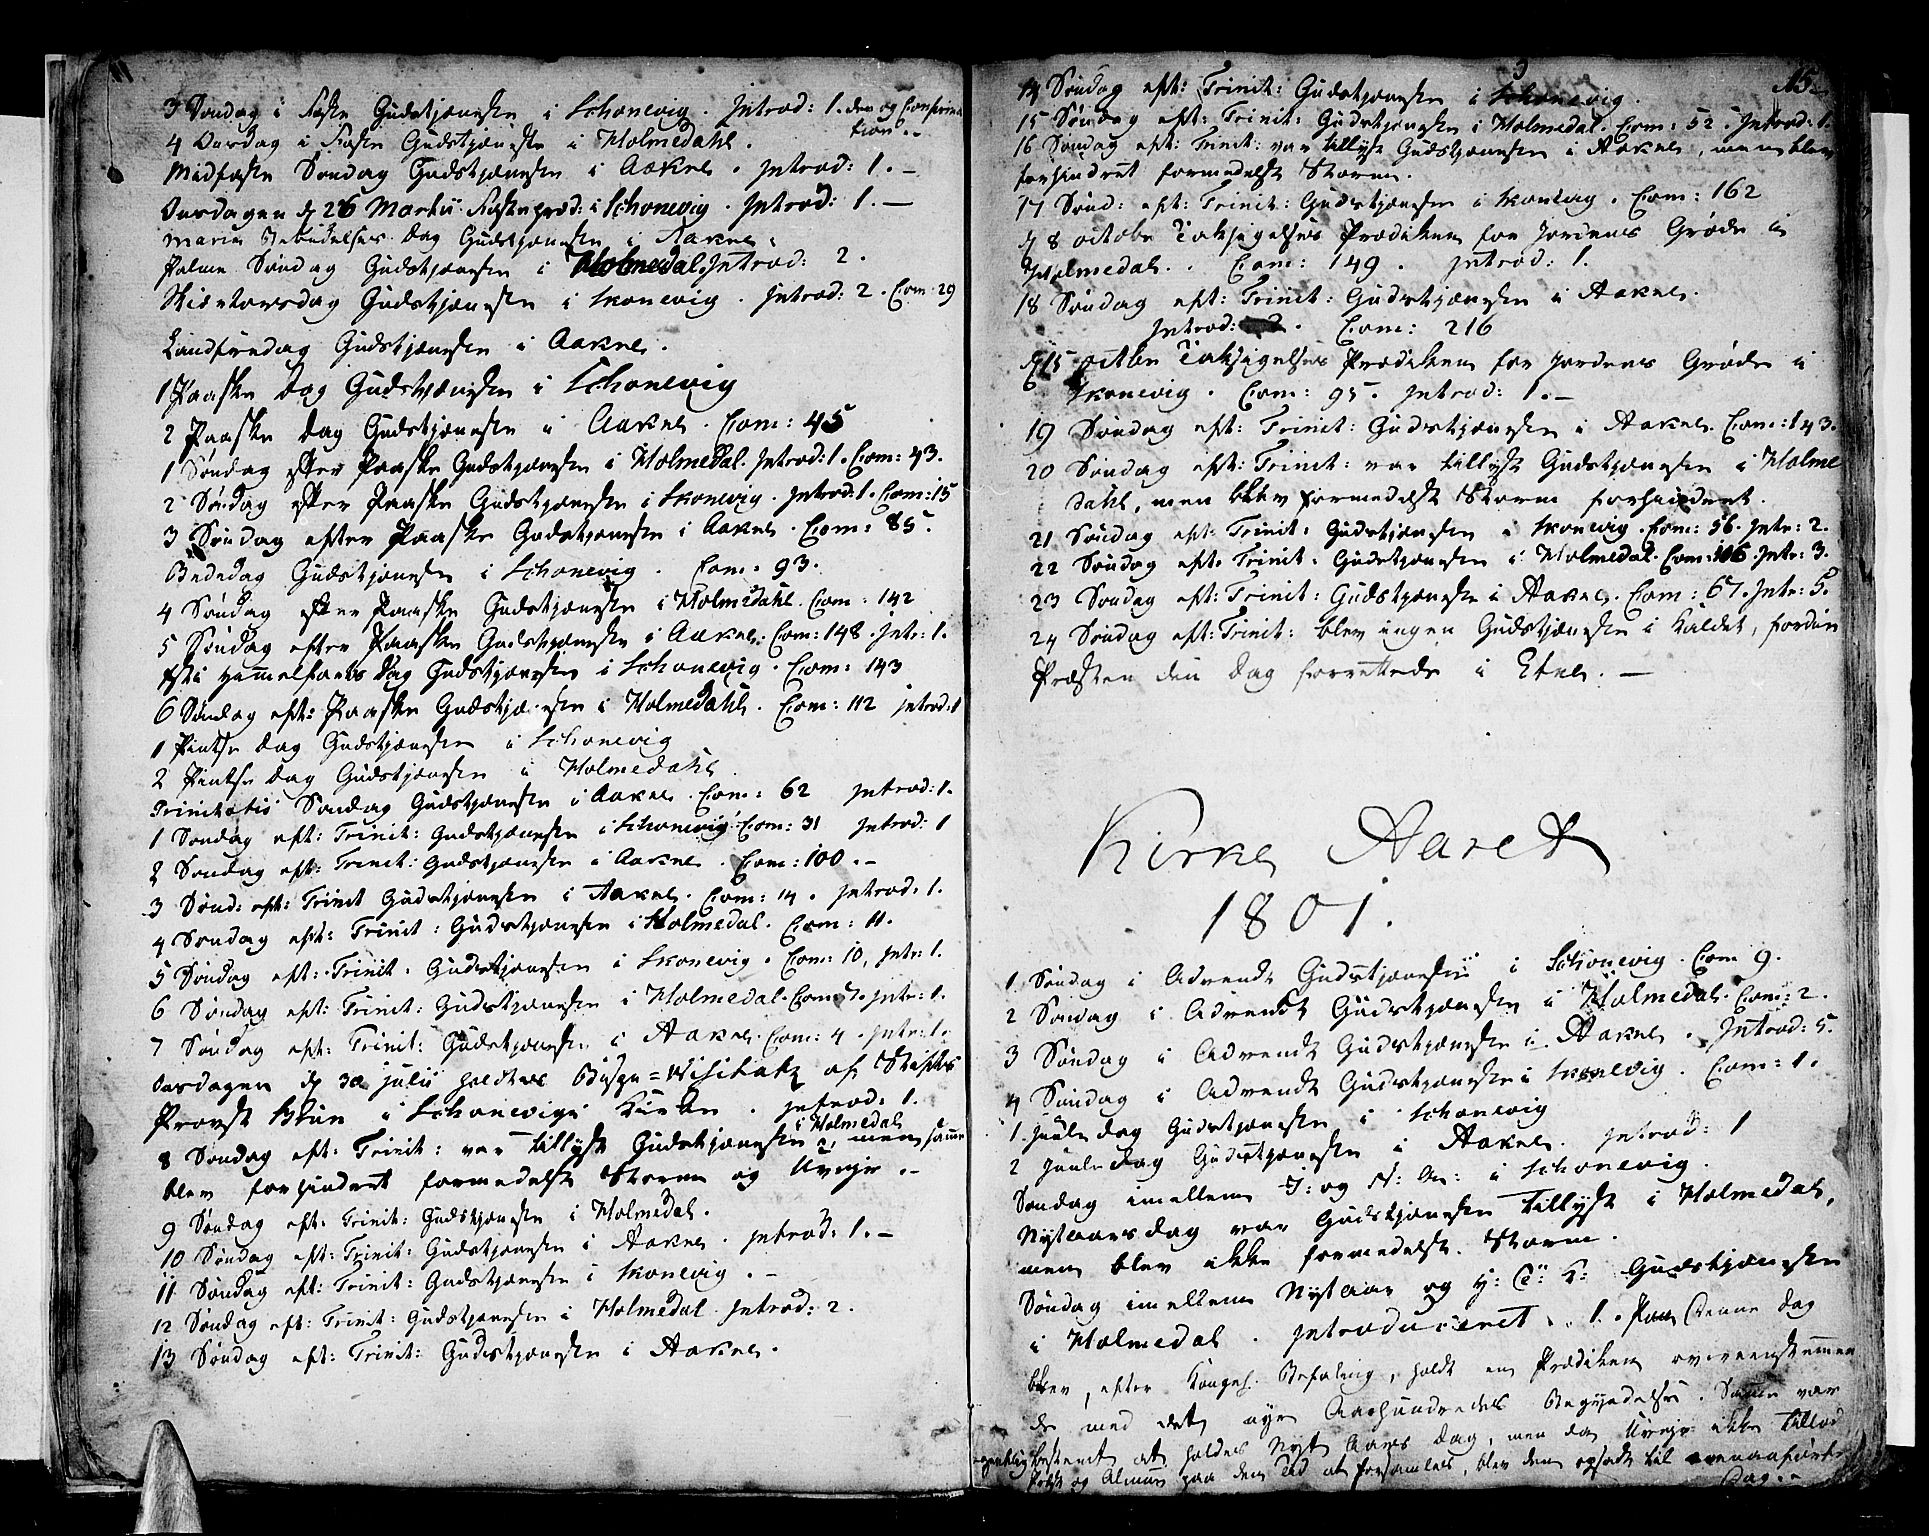 11
3 Søndag i Faste Gudstjænesten i Schonevig. Introd: 1. der og Confirma
tion.-
4 Onsdag i Faste Gudstjæneste i Holmedahl.
Midfaste Søndag Gudstjænesten i Aakre. Introd: 1.-
Onsdagen d 26 Martii Fastepræd: i Schonevig. Introd: 1.-
Mariæ Bebudelses Dag Gudstjænesten i Aakre.
Palme Søndag Gudstjænesten i Holmedal. Introd: 2.
Skiertorsdag Gudstjænesten i Skonevig. Introd: 2. Com: 29
Langfredag Gudstjænesten i Aakre.
1 Paaske Dag Gudstjænesten i Schonevig
2 Paaske Dag Gudstjænesten i Aakre. Com: 45
1 Søndag efter Paaske Gudstjænesten i Holmedal. Introd: 1. Com: 43.
2 Søndag efter Paaske Gudstjænesten i Skonevig. Introd: 1. Com: 15
3 Søndag efter Paaske Gudstjænesten i Aakre. Com: 85.
Bededag Gudstjænesten i Schonevig. Com: 93.
4 Søndag efter Paaske Gudstjæneste i Holmedahl. Com: 142
5 Søndag efter Paaske Gudstjæneste i Aakre. Com: 148. Intr: 1.
Xsti Himmelfarts Dag Gudstjænesten i Schonevig. Com: 143
6 Søndag eft: Paaske Gudstjænesten i Holmedahl. Com: 112 Introd: 1
1 Pintse Dag Gudstjænesten i Schonevig
2 Pintse Dag Gudstjænesten i Holmedahl
Trinitatis Søndag Gudstjænesten i Aakre. Com: 62 Introd: 1.
1 Søndag eft: Trinit: Gudstjænesten i Schonevig. Com: 31 Introd: 1
2 Søndag eft: Trinit: Gudstjænesten i Aakre. Com: 100.-
3 Sønd: eft: Trinit Gudstjænesten i Aakre. Com: 14. Introd: 1.
4 Søndag eft: Trinit: Gudstjænesten i Holmedal. Com: 11.
5 Søndag eft: Trinit: Gudstjænesten i Skonevig. Com: 10, Intr: 1.
6 Søndag eft: Trinit: Gudstjænesten i Holmedal. Com: 7. Intr: 1.
7 Søndag eft: Trinit: Gudstjænesten i Aakre. Com: 4. Intr: 1.
Onsdagen d 30 Julii holdtes Bispe=Visitatz af Stifts
Provst i Schonevigs Kirke. Introd: 1.
i Holmedal
8 Søndag eft: Trinit: var tillyst Gudstjænesten, men samme
blev forhindret formedelst Storm og Uveyr.-
9 Søndag eft: Trinit: Gudstjænesten i Holmedal.
10 Søndag eft: Trinit: Gudstjænesten i Aakre. Introd: 1.-
11 Søndag eft: Trinit: Gudstjænesten i Skonevig.-
12 Søndag eft: Trinit: Gudstjænesten i Holmedal. Introd: 2.
13 Søndag eft: Trinit: Gudstjænesten i Aakre.
15.
14 Søndag eft: Trinit: Gudstjænesten i Schonevig.
15 Søndag eft: Trinit: Gudstjænesten i Holmedal. Com: 52. Introd: 1.
16 Søndag eft: Trinit: var tillyst Gudstjænesten i Aakre, men blev
forhindret formedelst Storm.
17 Sønd: eft: Trinit: Gudstjænesten i Skonevig. Com: 162
d 8 octobr Taksigelses Prædiken for Jordens Grøde i
Holmedal. Com: 149. Introd: 1.
18 Søndag eft: Trinit: Gudstjænesten i Aakre.
Introd: Com: 216
d 15 octbr Taksigelses Prædiken for Jordens Grøde i
Skonevig. Com: 95. Introd: 1.-
19 Søndag eft: Trinit: Gudstjænesten i Aakre. Com: 143.
20 Søndag eft: Trinit: var tillyst Gudstjænesten i Holme
dahl, men blev formedelst Storm forhindret.
21 Søndag eft: Trinit: Gudstjænesten i Skonevig. Com: 56. Intr: 2.
22 Søndag eft: Trinit: Gudstjænesten i Holmedal. Com: 106 Intr: 3.
23 Søndag eft: Trinit: Gudstjæneste i Aakre. Com: 67. Intr: 5.
24 Søndag eft: Trinit: blev ingen Gudstjænesten i Kaldet, fordi
Præsten den Dag forrettede i Etne.-
Kirke Aaret
1801.
1 Søndag i Advendt Gudstjænesten i Schonevig. Com 9.
2 Søndag i Advendt Gudstjænesten i Holmedal. Com: 2.
3 Søndag i Advendt Gudstjænesten i Aakre. Introd: 5.
4 Søndag i Advendt Gudstjænesten i Skonevig. Com: 1.
1 Juule Dag Gudstjænesten i Schonevig
2 Juule Dag Gudstjænesten i Aakre. Introd: 1
Søndag imellem J: og N: A: i Schonevig.
Nytaarsdag var Gudstjænesten tillyst i Holmedal,
men blev ikke formedelst Storm.
Søndag imellem Nytaar og H: 3: K: Gudstjænesten
i Holmedal. Introduceret 1. Paa denne Dag
blev, efter Kongel. Befaling, holdt en Prædiken overeenstemmen
de med det nye Aarhundredes Begyndelse. Samme var
egentlig bestemt at holdes Nyt Aars Dag, men da Uveyr ikke tillod
Folk og Almue paa den Tid at forsamles, blev den opsadt til ovenanførte
Dag.-